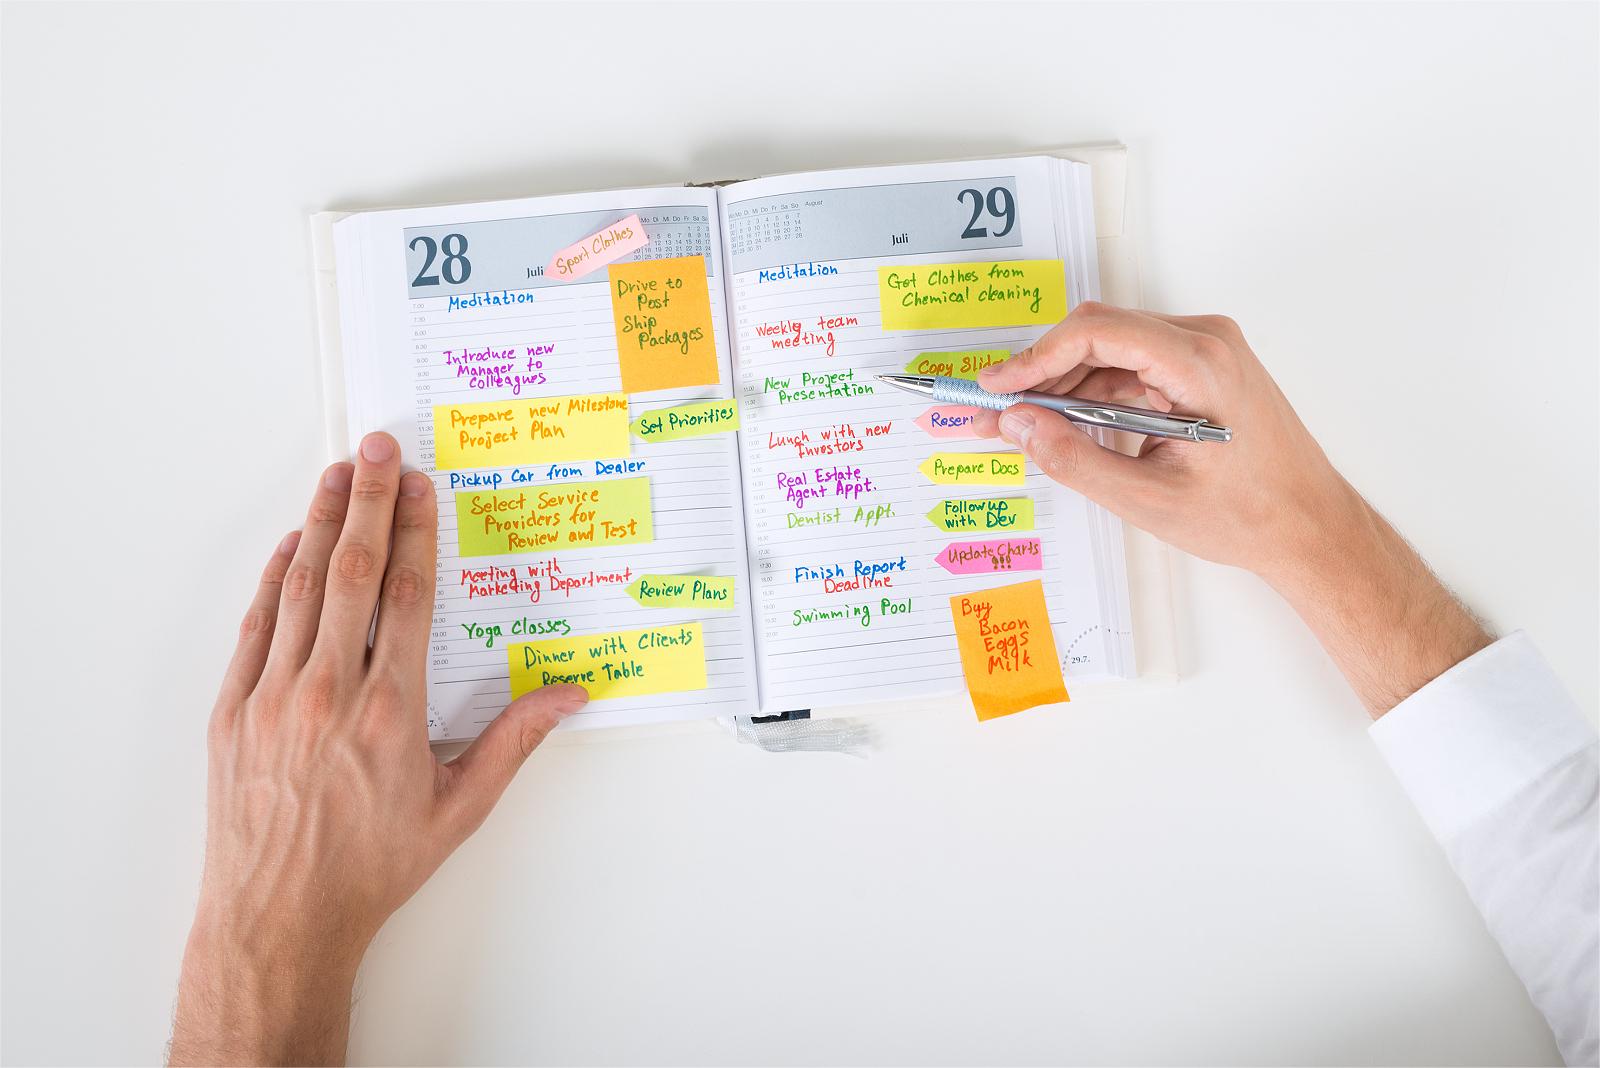 28
Juli
Sport Clothes
Mo Di Mi Do Fr Sa So
Meditation
Drive to
Post
Ship
Packages
Introduce new
Manager to
Colleagues
Prepare new Milestone
Project Plan
Set Priorities
Pickup Car from Dealer
Select Service
Providers for
Review and Test
Meeting with
Marketing Department
Review Plans
Yoga Classes
Dinner with Clients
Reserve Table
29
Juli
August
Mo Di Mi Do Fr Sa So
Meditation
Get Clothes from
Chemical cleaning
Weekly team
meeting
Copy
New Project
Presentation
Lunch with new
Investors
Prepare Docs
Real Estate
Agent Appt.
Dentist Appt.
Follow up
with Dev
Update Charts
!!!
Finish Report
Deadline
Swimming Pool
Buy
Bacon
Eggs
Milk
29.7.